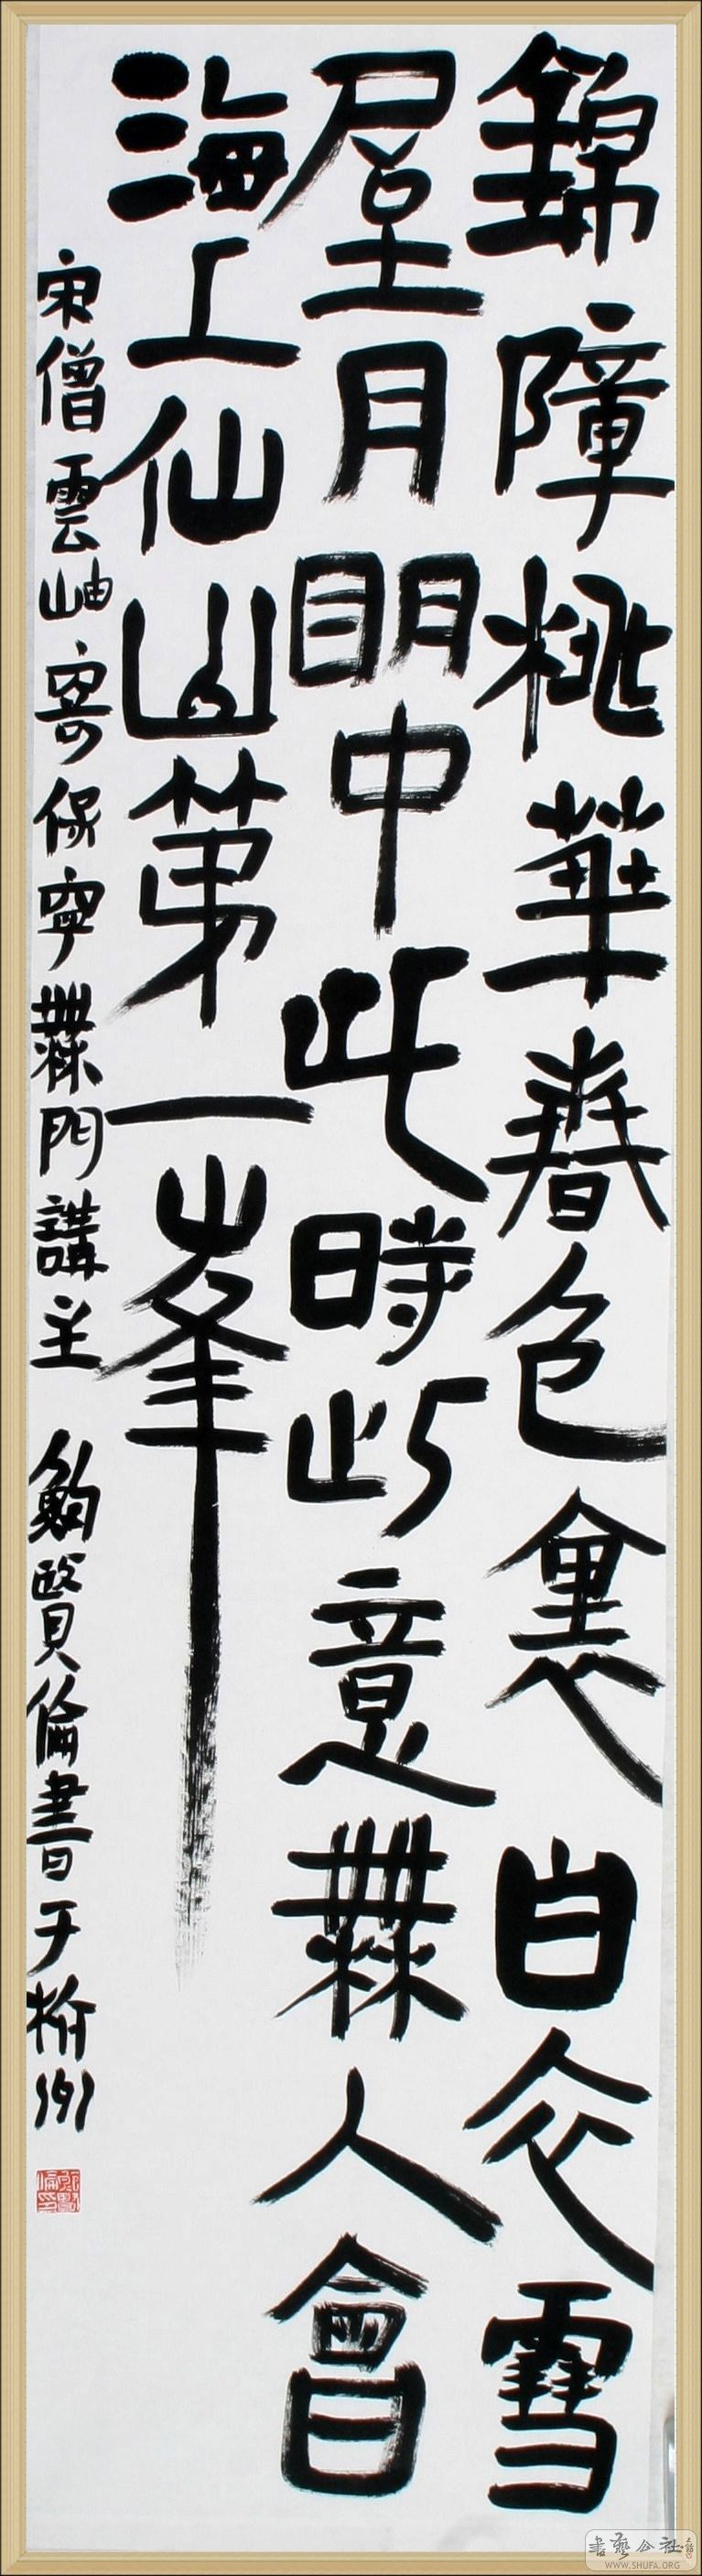 錦障桃華春色裏白衣雪
屋月眀中此時此意無人會
海上仙山第一峯
宋僧雲岫寄保寧無門講主 鮑賢倫書于杭州
書藝公社
WWW.SHUFA.ORG